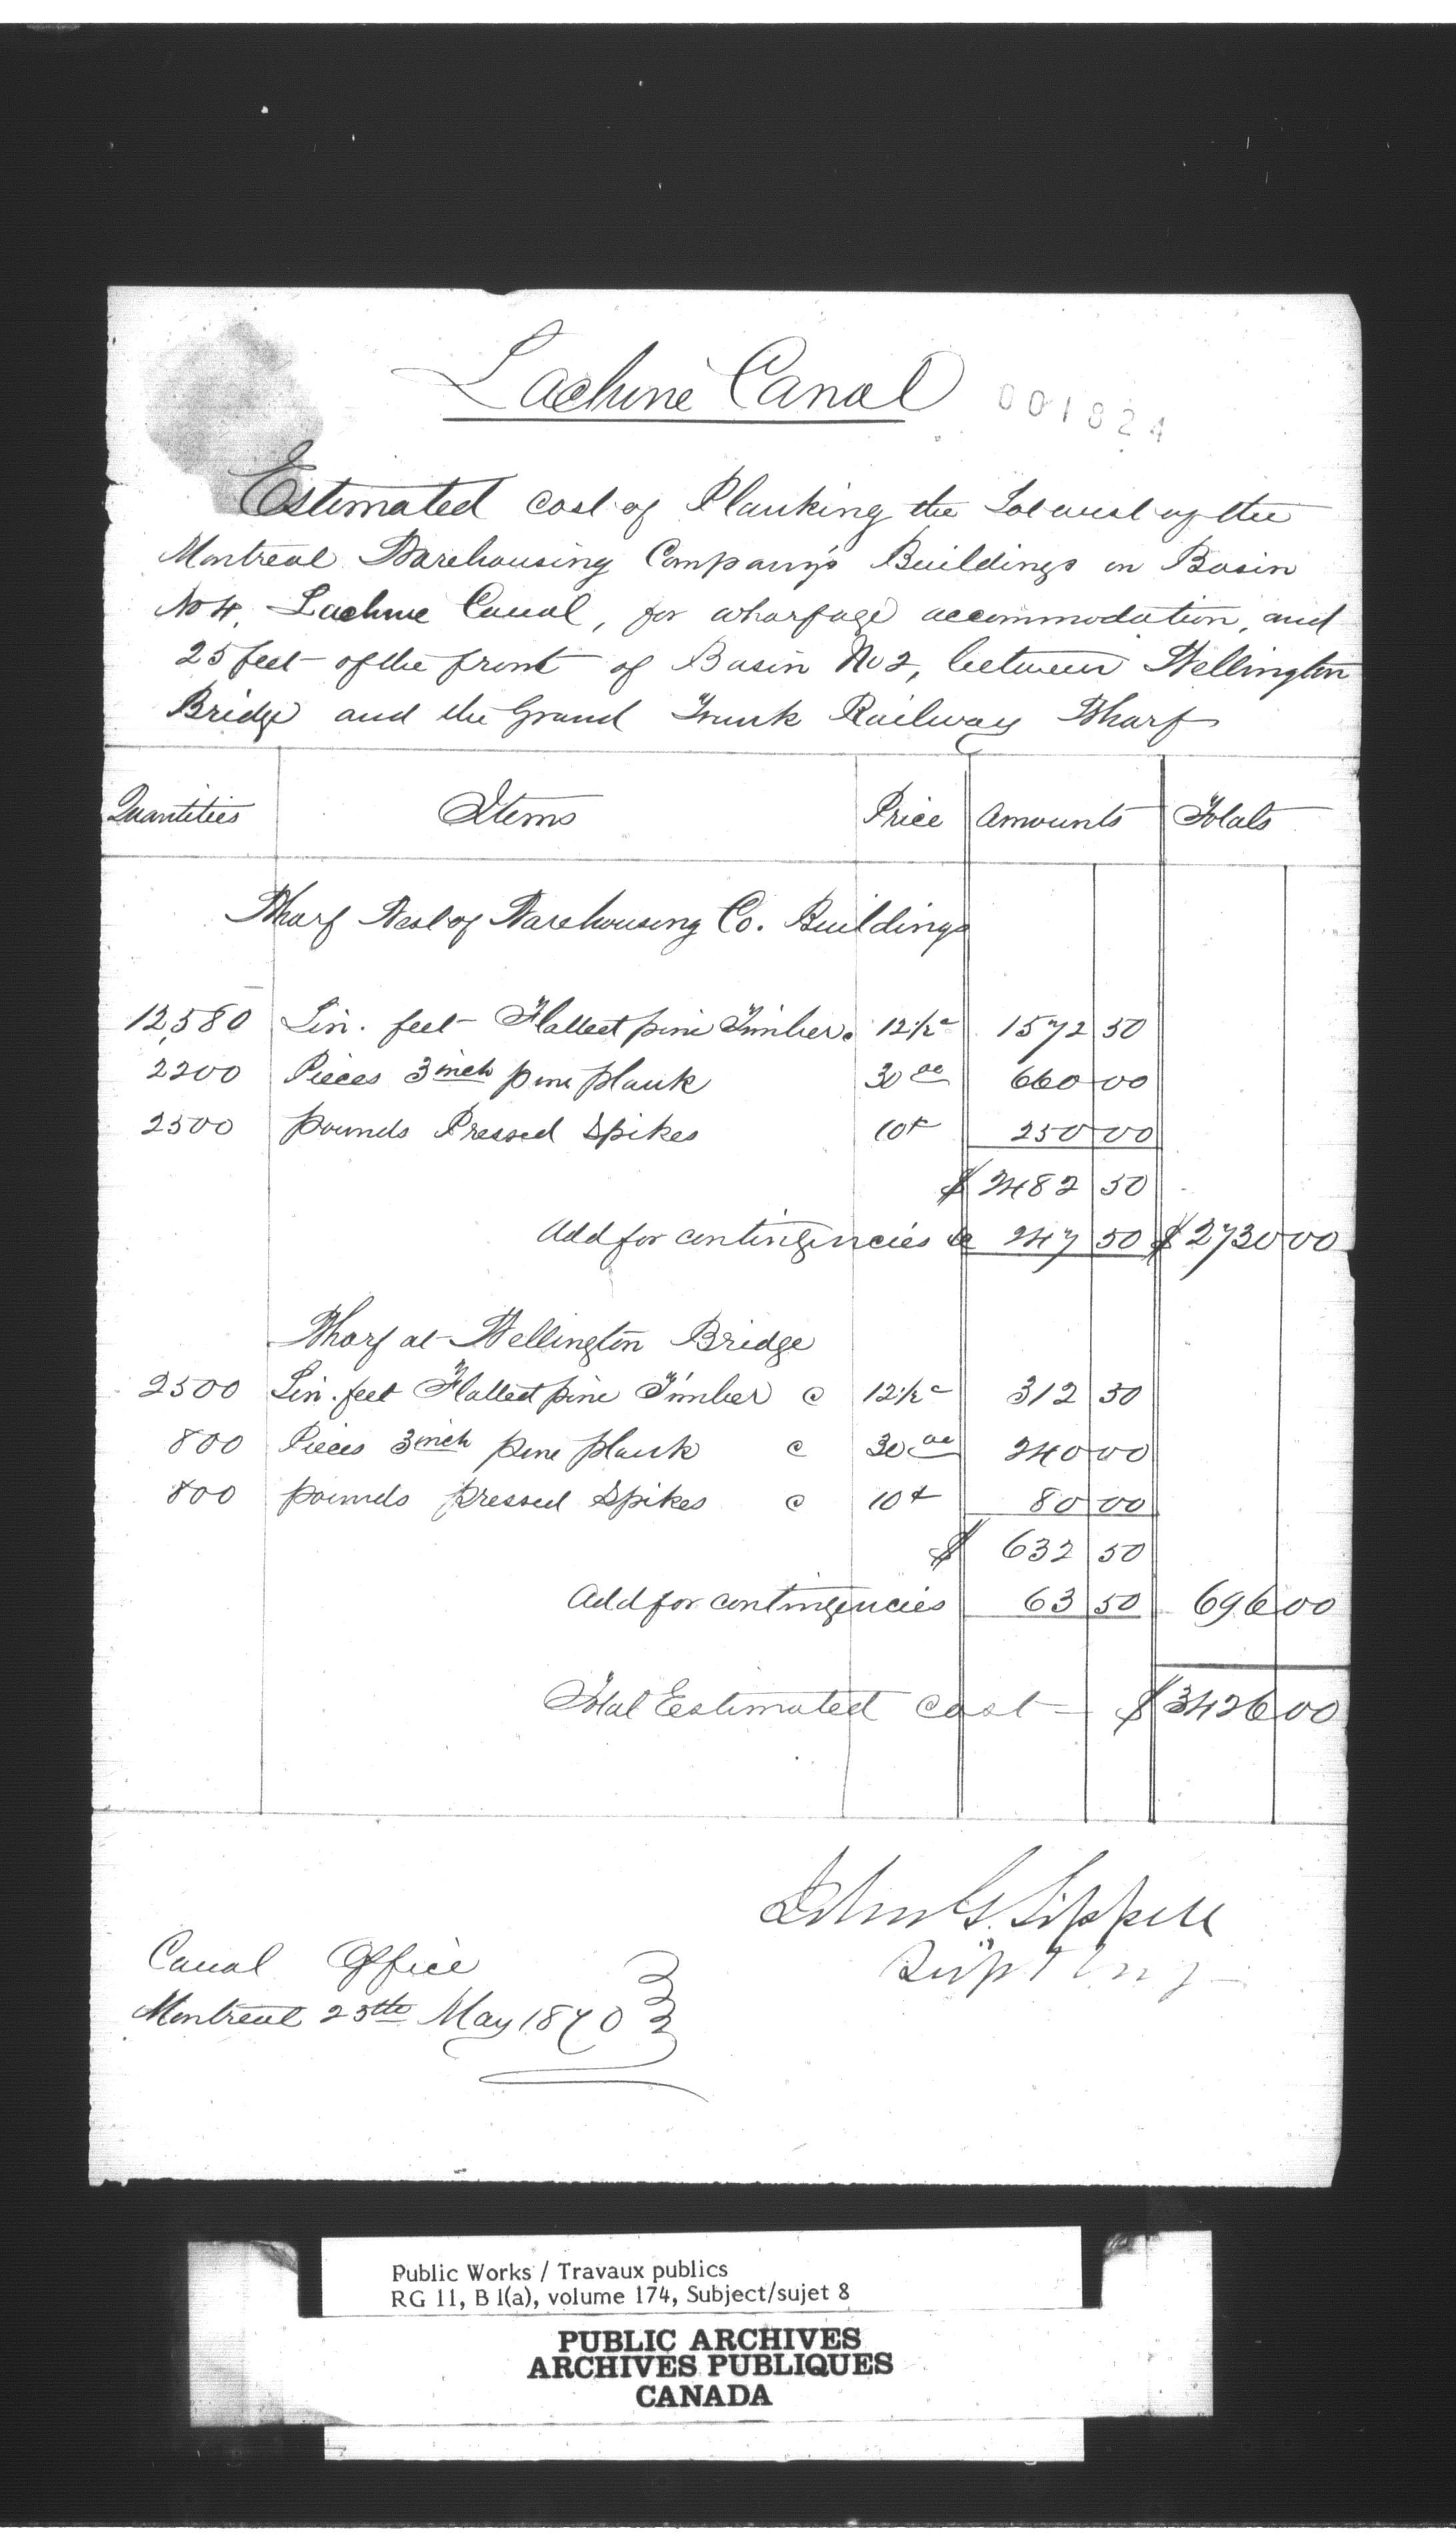 Lachine Canal
001824
Estimated cost of Planking the Lot west of the
Montreal Warehousing Company's Buildings on Basin
No 4, Lachine Canal, for wharfage accommodation, and
25 feet of the front of Basin No 2, between Wellington
Bridge and the Grand Trunk Railway Wharf
Quantities Items Price Amounts Totals
Wharf West of Warehousing Co. Buildings
12,580 Lin. feet Flatted pine Timber @ 12½ c 1572 50
2200 Pieces 3 inch pine plank 30 00 660 00
2500 pounds Pressed Spikes 10 c 250 00
$ 2482 50
Add for contingencies &c 247 50 $ 2730 00
Wharf at Wellington Bridge
2500 Lin. feet Flatted pine Timber @ 12½ c 312 50
800 Pieces 3 inch pine plank @ 30 00 240 00
800 pounds pressed Spikes @ 10 c 80 00
$ 632 50
Add for contingencies 63 50 696 00
Total Estimated cost $ 3426 00
John G. Sippell
Supt Eng
Canal Office
Montreal 25th May 1870
Public Works / Travaux publics
RG 11, B 1(a), volume 174, Subject/sujet 8
PUBLIC ARCHIVES
ARCHIVES PUBLIQUES
CANADA